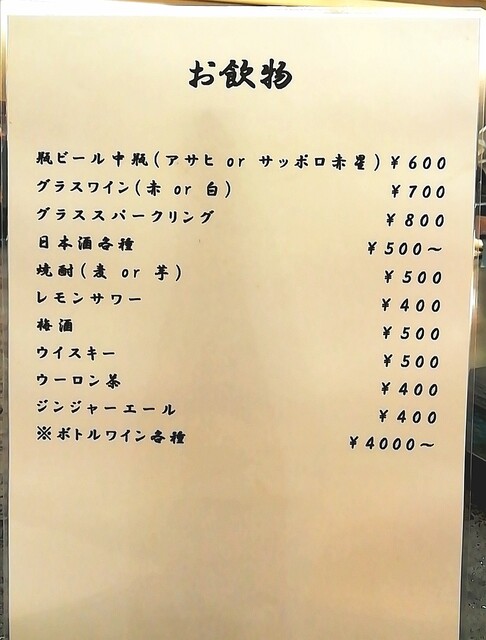 お飲物
瓶ビール中瓶(アサヒ or サッポロ赤星) ¥600
グラスワイン(赤 or 白) ¥700
グラススパークリング ¥800
日本酒各種 ¥500～
焼酎(麦 or 芋) ¥500
レモンサワー ¥400
梅酒 ¥500
ウイスキー ¥500
ウーロン茶 ¥400
ジンジャーエール ¥400
※ボトルワイン各種 ¥4000～